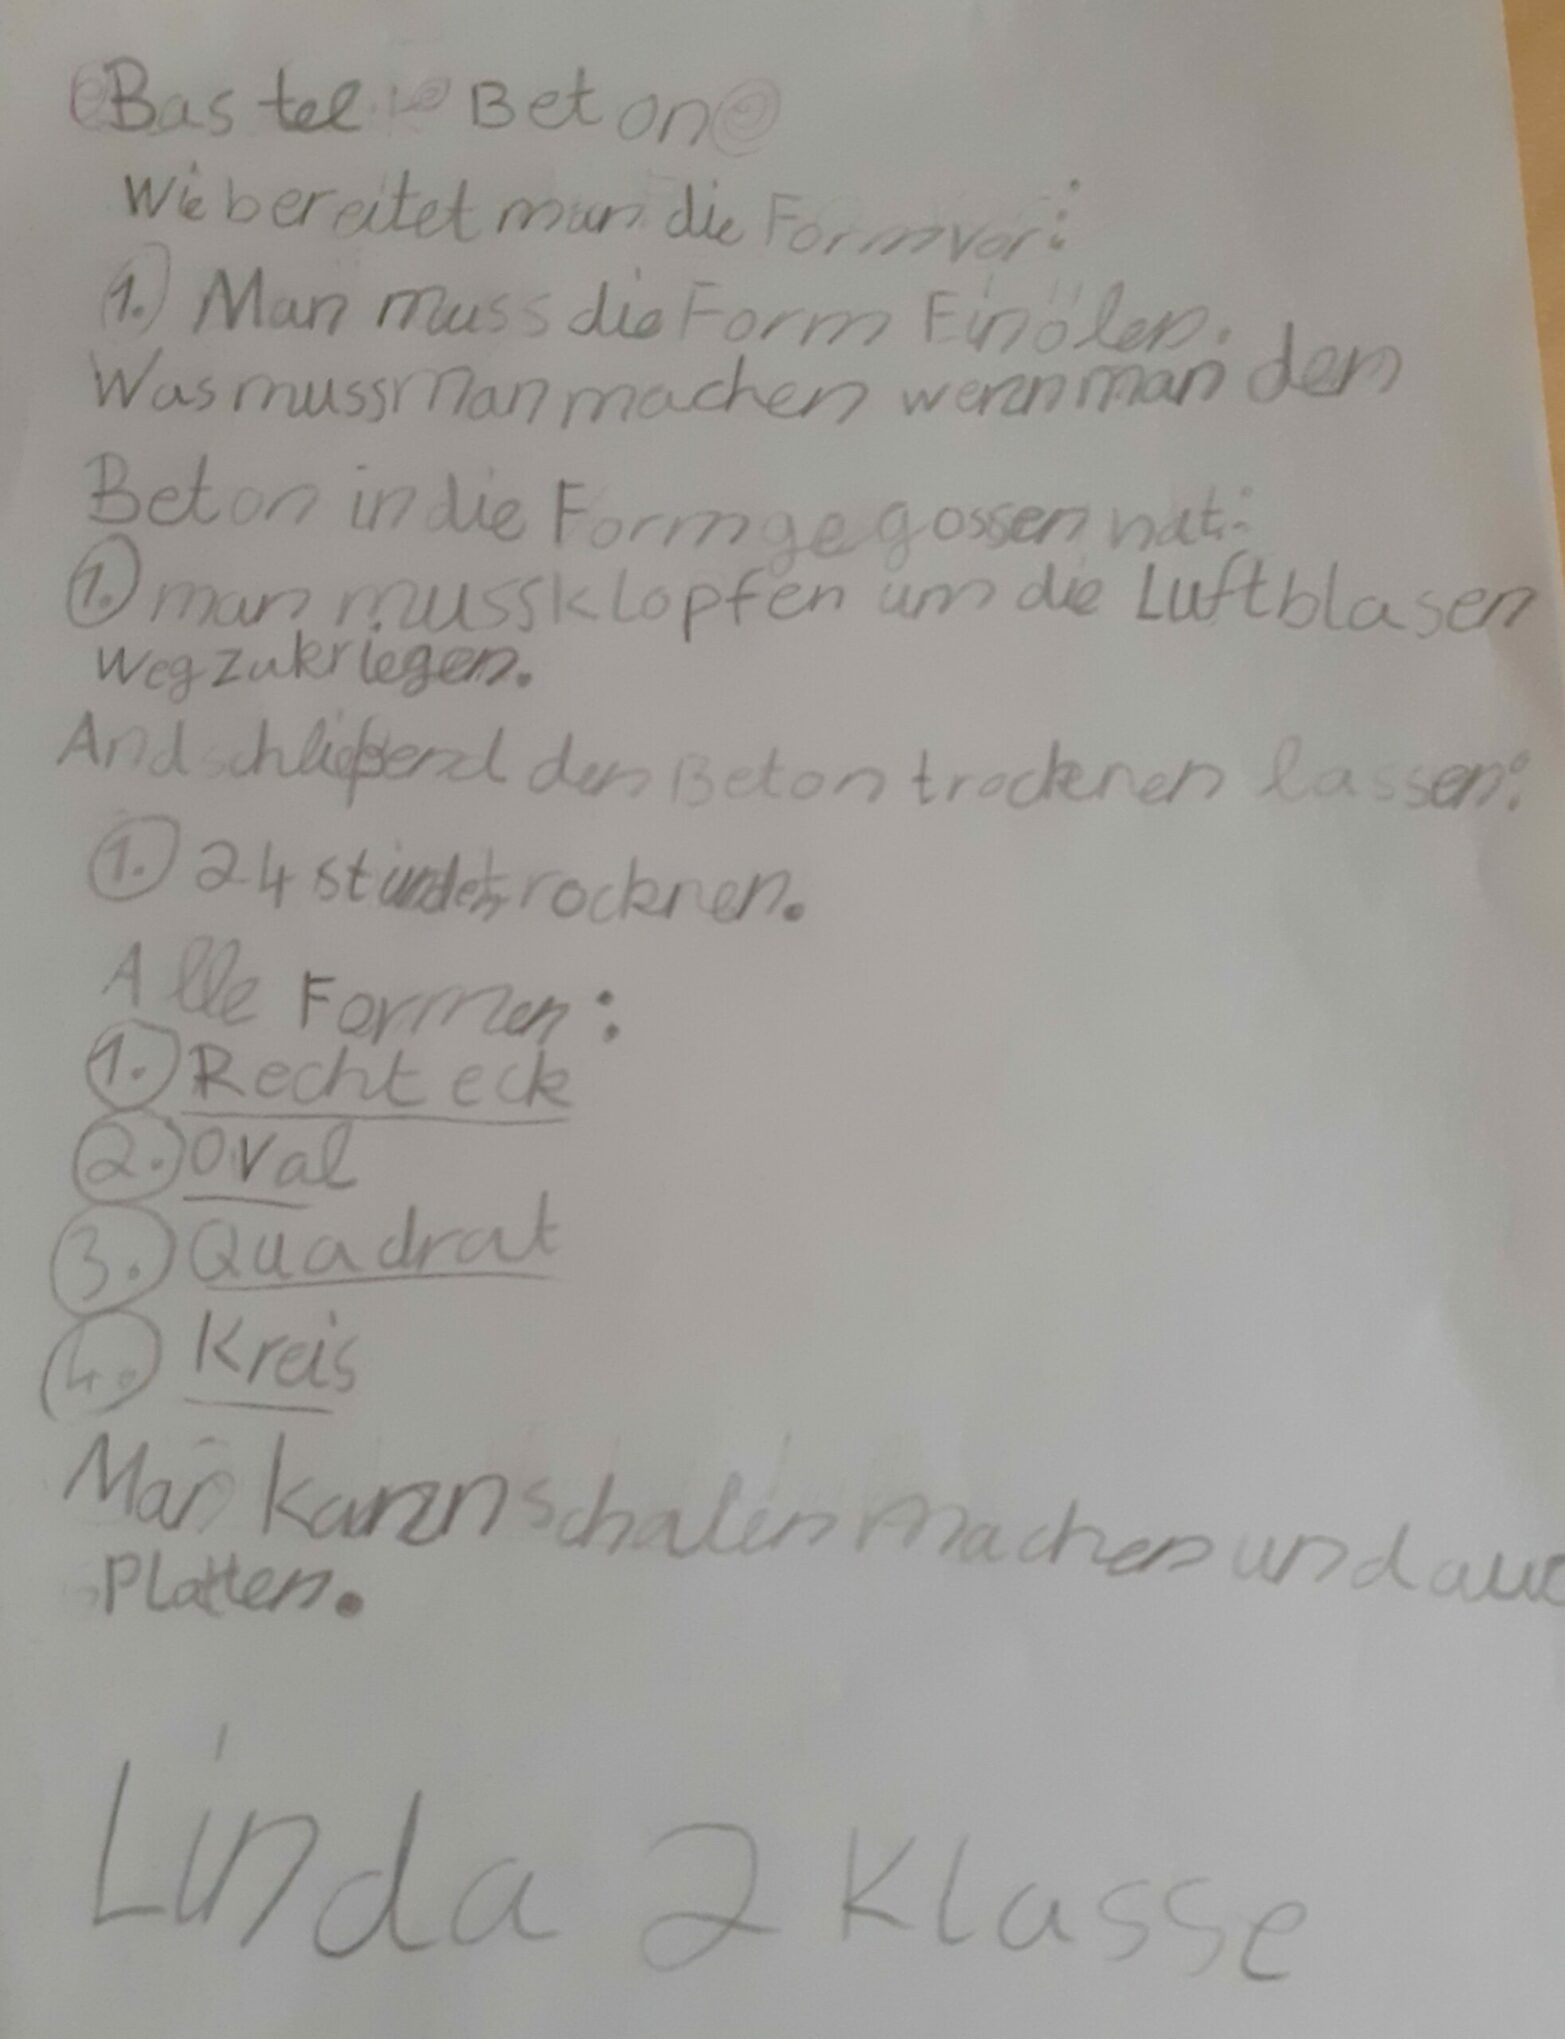 Bastel-Beton
Wie bereitet man die Form vor:
1. Man muss die Form Einölen.
Was muss Man machen wenn man den
Beton in die Form gegossen hat:
1. man muss klopfen um die Luftblasen
Wegzukriegen.
Andschließend den Beton trocknen lassen:
1. 24 stunden trocknen.
Alle Formen:
1. Rechteck
2. Oval
3. Quadrat
4. Kreis
Man kann schalen machen und auc
Platten.
Linda 2 Klasse